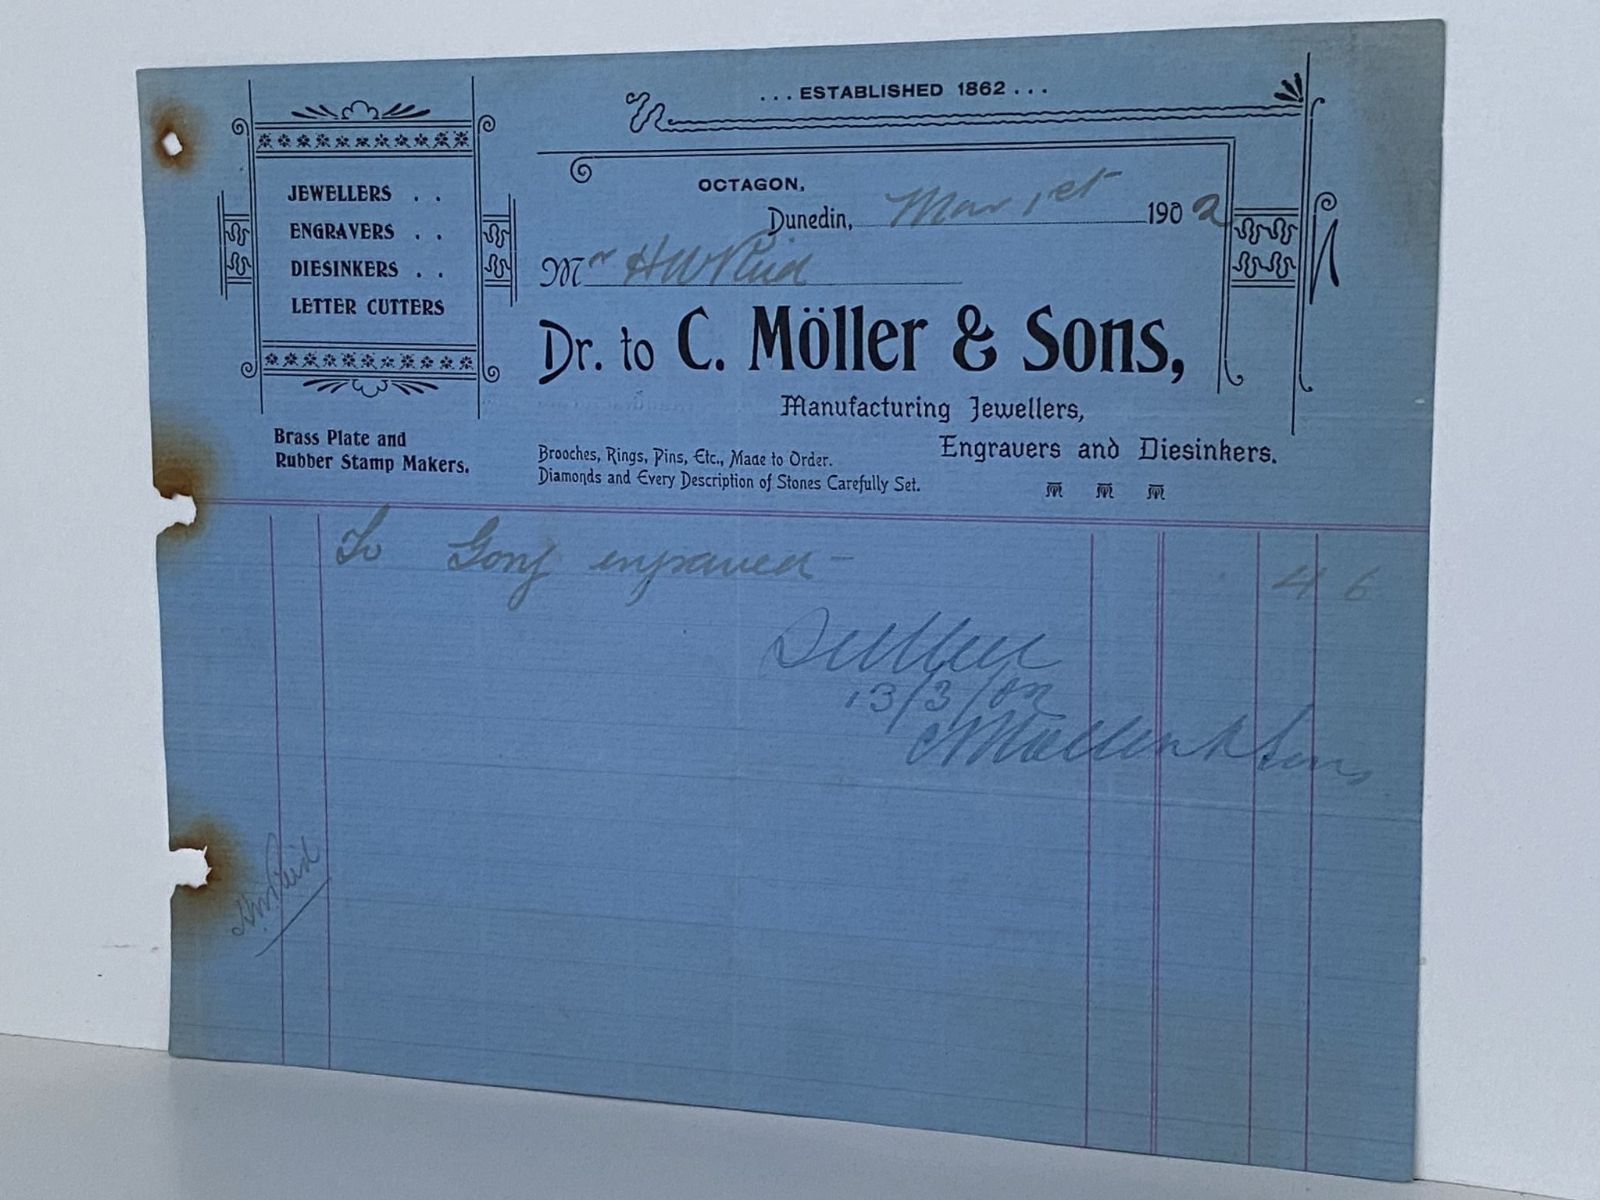 ... ESTABLISHED 1862 ...
JEWELLERS . .
ENGRAVERS . .
DIESINKERS . .
LETTER CUTTERS
OCTAGON,
Dunedin, Mar 1st 1902
Mr H W Reid
Dr. to C. Möller & Sons,
Manufacturing Jewellers,
Engravers and Diesinkers.
Brass Plate and
Rubber Stamp Makers.
Brooches, Rings, Pins, Etc., Made to Order.
Diamonds and Every Description of Stones Carefully Set.
To Gong engraved - 4 6
13/3/02
C Moller & Sons
H W Reid